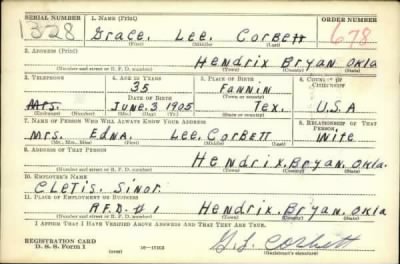 SERIAL NUMBER 1. NAME (Print) ORDER NUMBER
328 Grace. Lee. Corbett 678
(First) (Middle) (Last)
2. ADDRESS (Print)
Hendrix Bryan. Okla
(Number and street or R. F. D. number) (Town) (County) (State)
3. TELEPHONE 4. AGE IN YEARS 5. PLACE OF BIRTH 6. COUNTRY OF CITIZENSHIP
35 Fannin
DATE OF BIRTH (Town or county)
Mrs. June. 3 1905 Tex. U.S.A
(Exchange) (Number) (Mo.) (Day) (Yr.) (State or country)
7. NAME OF PERSON WHO WILL ALWAYS KNOW YOUR ADDRESS 8. RELATIONSHIP OF THAT PERSON
Mrs. Edna. Lee, Corbett Wife
(Mr., Mrs., Miss) (First) (Middle) (Last)
9. ADDRESS OF THAT PERSON
Hendrix. Bryan. Okla.
(Number and street or R. F. D. number) (Town) (County) (State)
10. EMPLOYER'S NAME
Cletis. Sinor
11. PLACE OF EMPLOYMENT OR BUSINESS
R.F.D. #1 Hendrix. Bryan. Okla
(Number and street or R. F. D. number) (Town) (County) (State)
I AFFIRM THAT I HAVE VERIFIED ABOVE ANSWERS AND THAT THEY ARE TRUE.
REGISTRATION CARD
D. S. S. Form 1 (over) 16—17105 G. L. Corbett
(Registrant's signature)